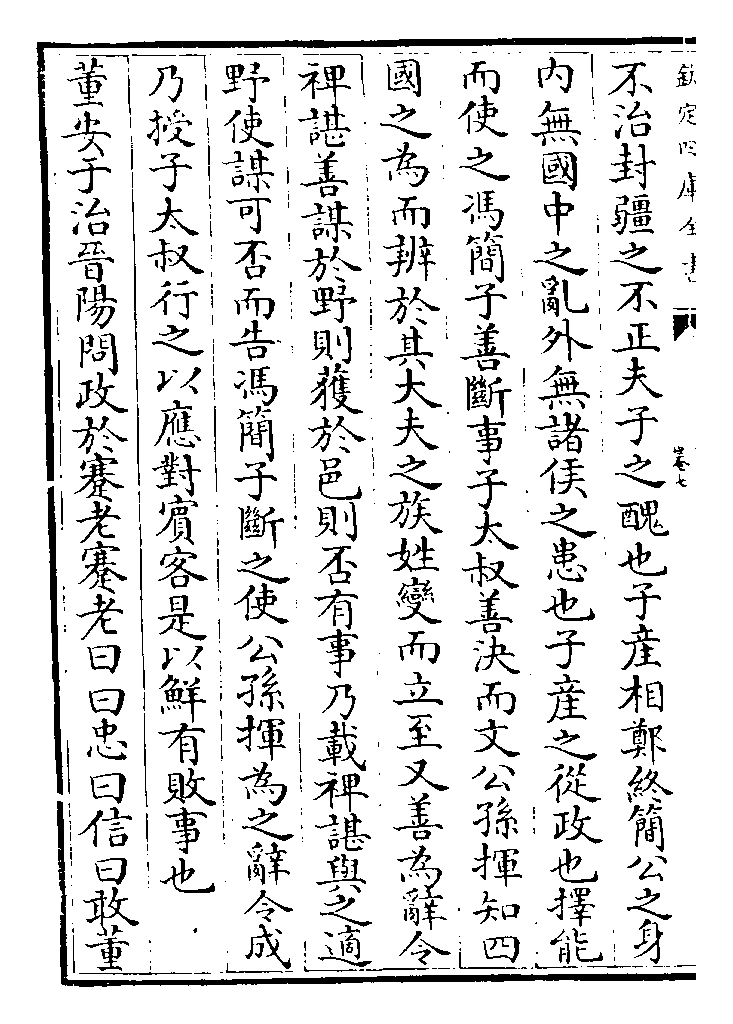 欽定四庫全書
卷七
不治封疆之不正夫子之醜也子産相鄭終簡公之身
内無國中之亂外無諸侯之患也子産之從政也擇能
而使之馮簡子善斷事子太叔善決而文公孫揮知四
國之為而辨於其大夫之族姓變而立至又善為辭令
裨諶善謀於野則獲於邑則否有事乃載裨諶與之適
野使謀可否而告馮簡子斷之使公孫揮為之辭令成
乃授子太叔行之以應對賓客是以鮮有敗事也
董安于治晉陽問政於蹇老蹇老曰曰忠曰信曰敢董